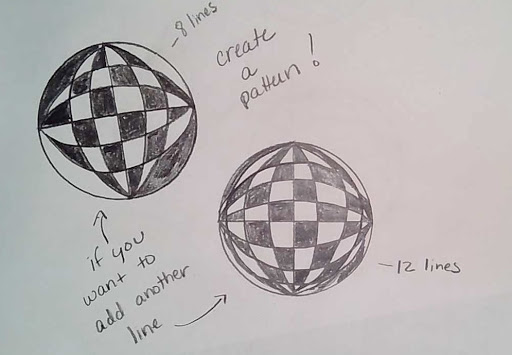 -8 lines
create
a
pattern!
if you
want to
add another
line
-12 lines